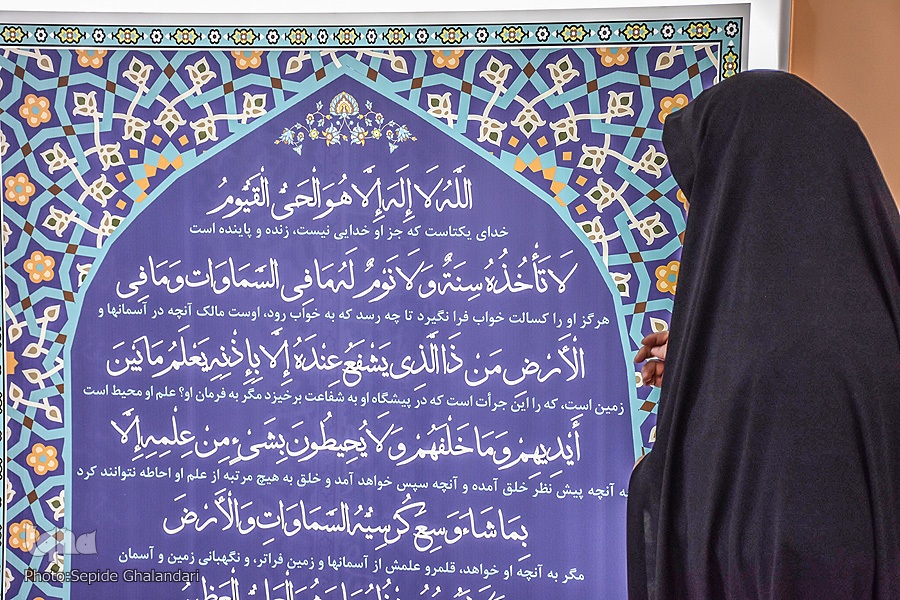 اللَّهُ لَا إِلَهَ إِلَّا هُوَ الْحَيُّ الْقَيُّومُ
خدای یکتاست که جز او خدایی نیست، زنده و پاینده است
لَا تَأْخُذُهُ سِنَةٌ وَلَا نَوْمٌ لَهُ مَا فِي السَّمَاوَاتِ وَمَا فِي
هرگز او را کسالت خواب فرا نگیرد تا چه رسد که به خواب رود، اوست مالک آنچه در آسمانها و
الْأَرْضِ مَنْ ذَا الَّذِي يَشْفَعُ عِنْدَهُ إِلَّا بِإِذْنِهِ يَعْلَمُ مَا بَيْنَ
زمین است، که را این جرأت است که در پیشگاه او به شفاعت برخیزد مگر به فرمان او؟ علم او محیط است
أَيْدِيهِمْ وَمَا خَلْفَهُمْ وَلَا يُحِيطُونَ بِشَيْءٍ مِنْ عِلْمِهِ إِلَّا
به آنچه پیش نظر خلق آمده و آنچه سپس خواهد آمد و خلق به هیچ مرتبه از علم او احاطه نتوانند کرد
بِمَا شَاءَ وَسِعَ كُرْسِيُّهُ السَّمَاوَاتِ وَالْأَرْضَ
مگر به آنچه او خواهد، قلمرو علمش از آسمانها و زمین فراتر، و نگهبانی زمین و آسمان
iqna
Photo:Sepide Ghalandari